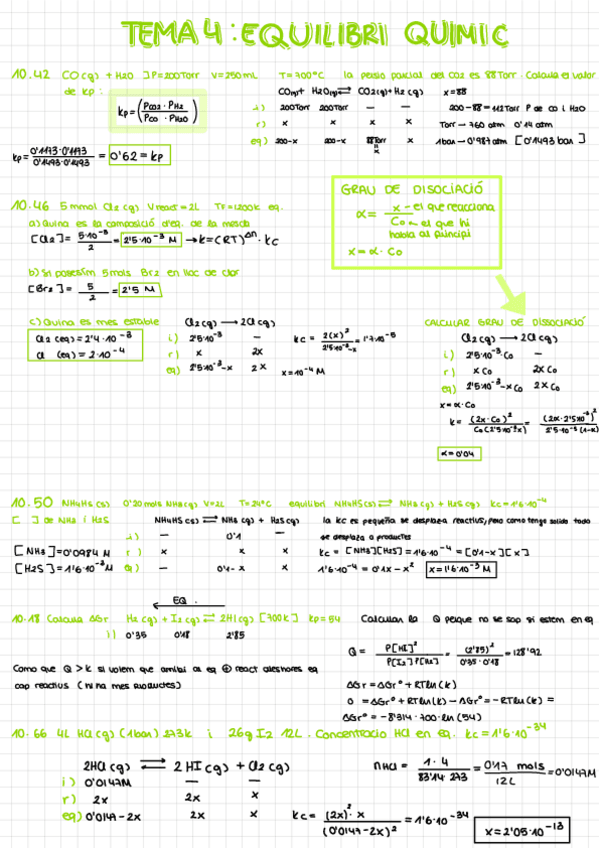 TEMA 4: EQUILIBRI QUIMIC
10.42 CO(g) + H2O ]P=200Torr V=250mL T=700°C la pressio parcial del CO2 es 88 Torr. Calcula el valor
de kp:
kp = (PCO2 · PH2 / PCO · PH2O)
CO(g) + H2O(g) ⇌ CO2(g) + H2(g) x=88
i) 200Torr 200Torr — — 200-88=112Torr P de CO i H2O
r) x x x x Torr → 760 atm 0'14 atm
eq) 200-x 200-x 88Torr x 1bar → 0'987 atm [0'1493 bar]
x
kp = 0'1173·0'1173 / 0'1493·0'1493 = 0'62 = kp
GRAU DE DISOCIACIÓ
α = x → el que reacciona / C0 → el que hi había al principi
x = α · C0
10.46 5mmol Cl2 (g) Vreact=2L T=1200K eq.
a) Quina es la composició d'eq. de la mescla
[Cl2] = 5·10⁻³ / 2 = 2'5·10⁻³ M → k=(RT)^Δn · kc
b) Si posessim 5mols Br2 en lloc de clor
[Br2] = 5 / 2 = 2'5 M
c) Quina es mes estable
Cl2 (eq) = 2'4·10⁻³
Cl (eq) = 2·10⁻⁴
Cl2(g) → 2Cl(g)
i) 2'5·10⁻³ —
r) x 2x
eq) 2'5·10⁻³-x 2x
kc = 2(x)² / 2'5·10⁻³-x = 1'7·10⁻⁵
x=10⁻⁴ M
CALCULAR GRAU DE DISSOCIACIÓ
Cl2(g) → 2Cl(g)
i) 2'5·10⁻³·C0 —
r) xC0 2xC0
eq) 2'5·10⁻³-xC0 2xC0
x=α·C0
k = (2x·C0)² / C0(2'5·10⁻³-x) = (2α·2'5·10⁻³)² / 2'5·10⁻³(1-α)
α=0'04
10.50 NH4HS(s) 0'20 mols NH3(g) V=2L T=24°C equilibri NH4HS(s) ⇌ NH3(g) + H2S(g) kc=1'6·10⁻⁴
[ ] de NH3 i H2S
NH4HS(s) ⇌ NH3(g) + H2S(g)
i) — 0'1 —
r) x x x
eq) — 0'1-x x
[NH3]=0'0984 M
[H2S]=1'6·10⁻³ M
la kc es pequeña se desplaza reactius, pero como tengo solido todo
se desplaza a productes
kc = [NH3][H2S]=1'6·10⁻⁴ = [0'1-x][x]
1'6·10⁻⁴ = 0'1x-x² x=1'6·10⁻³ M
EQ.
10.18 Calcula ΔGr H2(g) + I2(g) ⇌ 2HI(g) [700K] kp=54 Calculem la Q perque no se sap si estem en eq
i) 0'35 0'18 2'85
Q = P[HI]² / P[I2]P[H2] = (2'85)² / 0'35·0'18 = 128'92
Como que Q>k si volem que arribi al eq ⊕ react aleshores eq
cap reactius (hi ha mes productes)
ΔGr = ΔGr° + RTln(k)
0 = ΔGr° + RTln(k) → ΔGr° = -RTln(k) =
ΔGr° = -8'314·700·ln(54)
10.66 4L HCl(g) (1bar) 273K i 26g I2 12L. Concentracio HCl en eq. kc=1'6·10⁻³⁴
2HCl(g) ⇌ 2HI(g) + Cl2(g)
i) 0'0147M — —
r) 2x 2x x
eq) 0'0147-2x 2x x
nHCl = 1·4 / 83'14·273 = 0'17 mols / 12L = 0'0147M
kc = (2x)²·x / (0'0147-2x)² = 1'6·10⁻³⁴
x=2'05·10⁻¹³